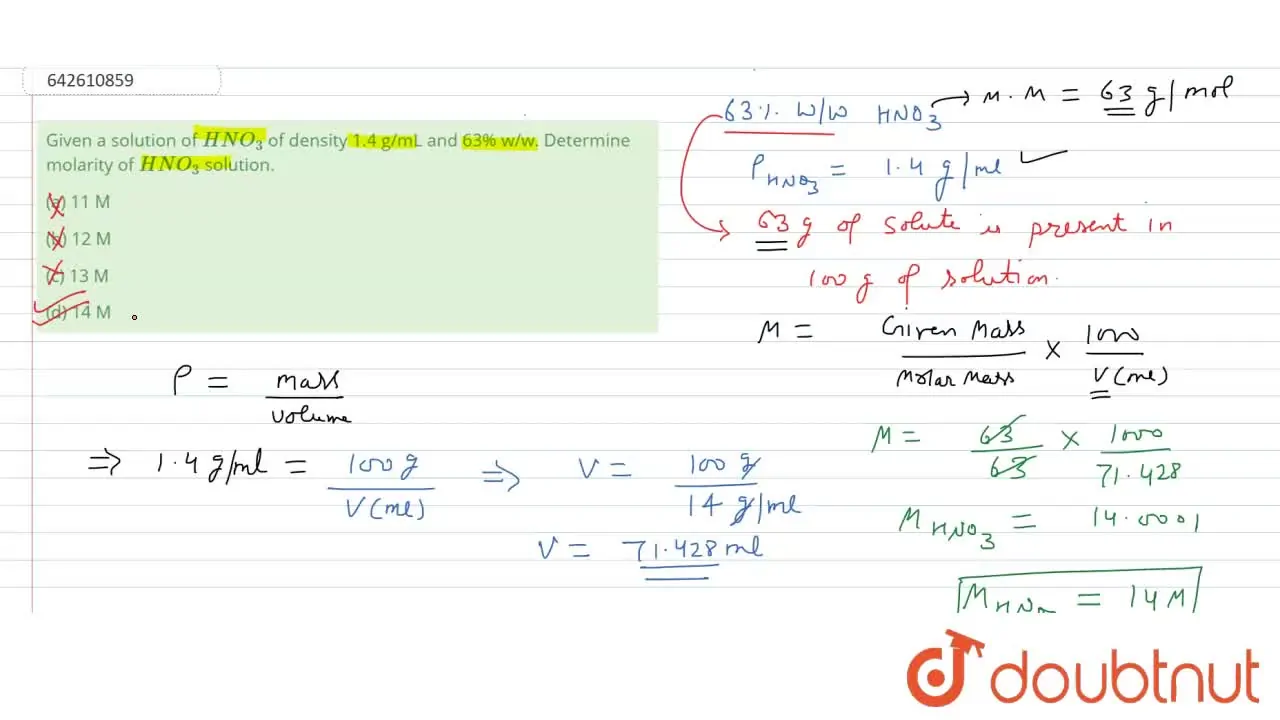 642610859
Given a solution of HNO₃ of density 1.4 g/mL and 63% w/w. Determine
molarity of HNO₃ solution.
(a) 11 M
(b) 12 M
(c) 13 M
(d) 14 M
63% w/w HNO₃ → M.M = 63 g/mol
ρ HNO₃ = 1.4 g/ml ✓
63 g of solute is present in
100 g of solution.
M = Given Mass / Molar Mass × 1000 / V(ml)
M = 63 / 63 × 1000 / 71.428
M HNO₃ = 14.0001
M HNO₃ = 14 M
ρ = mass / volume
⇒ 1.4 g/ml = 100 g / V(ml) ⇒ V = 100 g / 14 g/ml
V = 71.428 ml
doubtnut